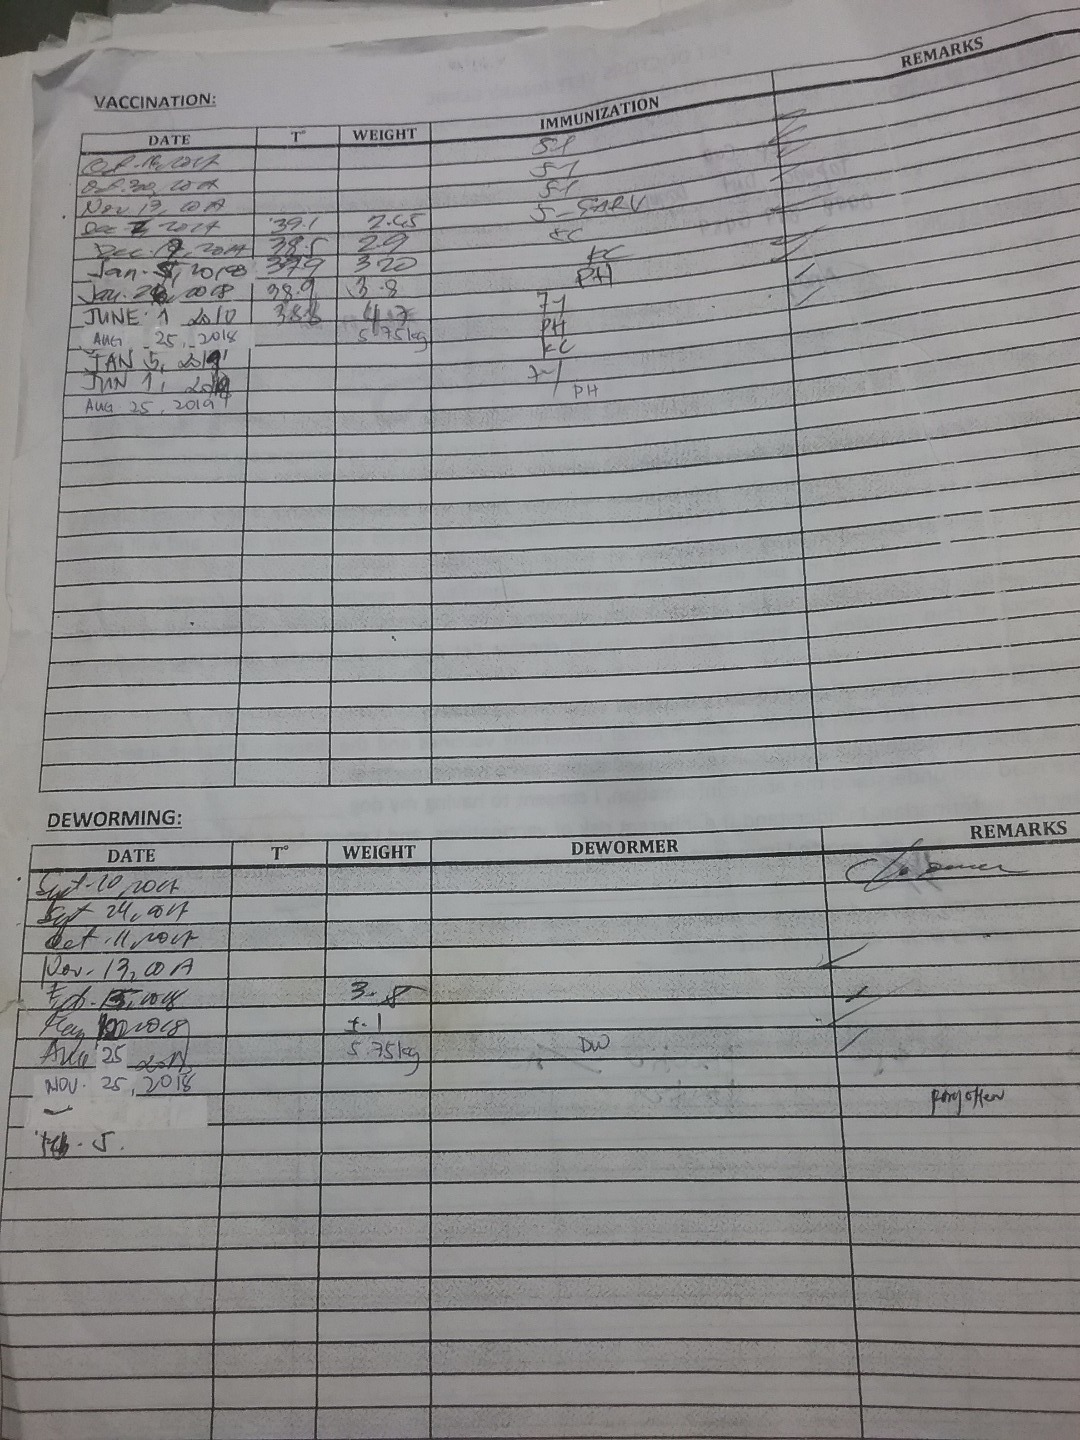 VACCINATION:
DATE T° WEIGHT IMMUNIZATION REMARKS
51
51
Nov 13, 51
Dec 7 2017 39.1 2.45 5-
Dec. 19, 2017 38.5 2.9 KC
Jan. 5, 2018 37.9 3.20 KC
Jan. 2018 38.9 3.8 PH
JUNE 1 2018 38.8 4.7 71
AUG 25, 2018 5.75kg PH
JAN 5, 2019 KC
JUN 1, 2019 7-1
AUG 25, 2019 PH
DEWORMING:
DATE T° WEIGHT DEWORMER REMARKS
Sept. 10, 2017
Sept 24, 2017
Oct. 11, 2017
Nov. 13, 2017
Feb. 5, 2018 3.8
2018
AUG 25 5.75kg DW
NOV. 25, 2018
Feb. 5.